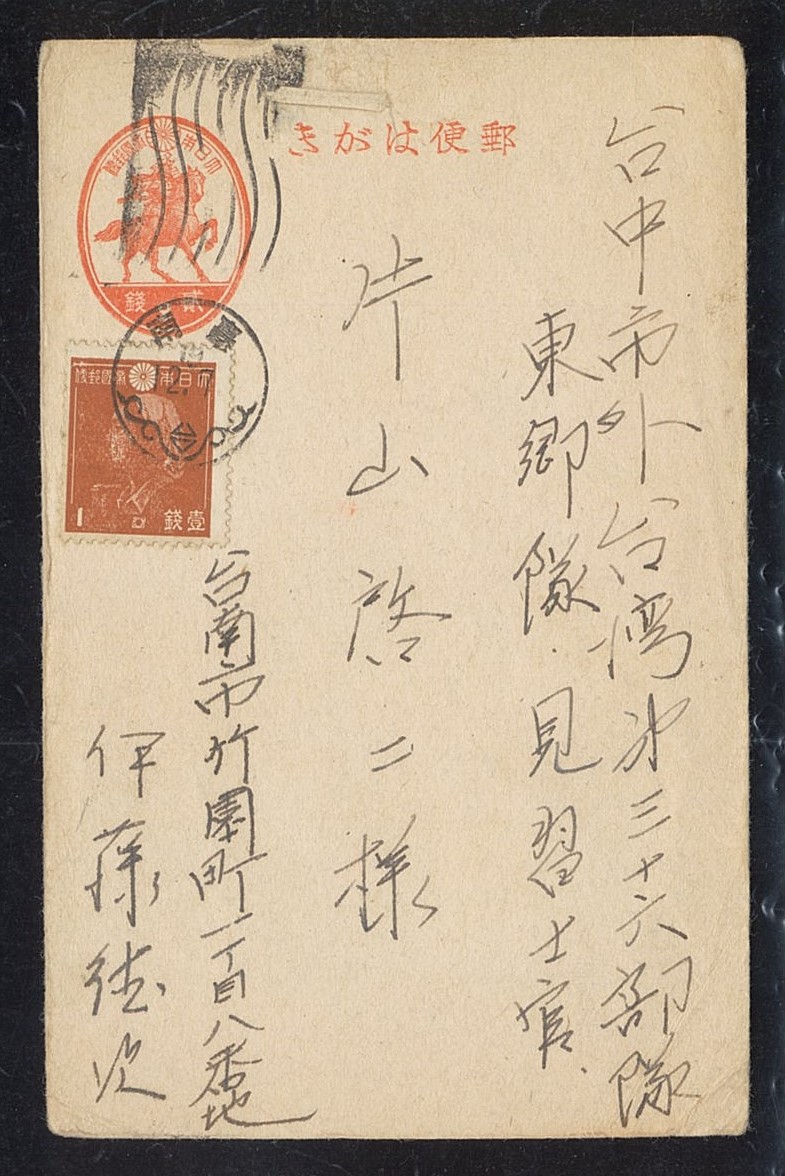 郵便はがき
台中市外台湾第三十六部隊
東郷隊 見習士官
片山啓二様
台南市竹園町一丁目八番地
伊藤徳次
大日本帝國郵便
貳錢
臺南
12.7
大日本帝國郵便
1 壹錢